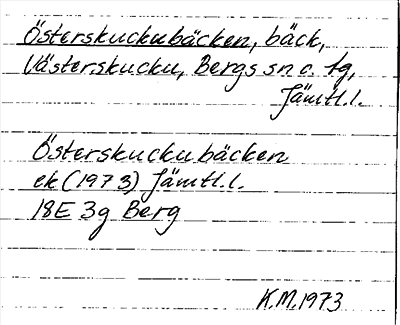 Österskuckubäcken, bäck,
Västerskucku, Bergs sn o. tg,
Jämtl.l.
Österskuckubäcken
ek (1973) Jämtl.l.
18E 3g Berg
K.M.1973